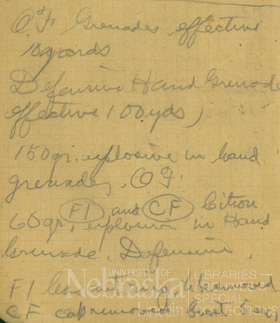 O.F. Grenades effective
Defensive Hand Grenade
effective 100 yds)
150 gr. explosive in hand
grenades, O.F.
F1 and CF Citron
60 gr. explosive in Hand
Grenade. Defensive.
F1 removed
CF cap removed but
UNIVERSITY OF
Nebraska
LIBRARIES
SPECIAL